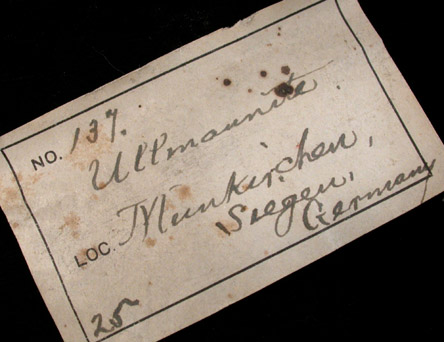 NO. 137.
Ullmannite.
LOC. Munkirchen,
Siegen,
Germany
25